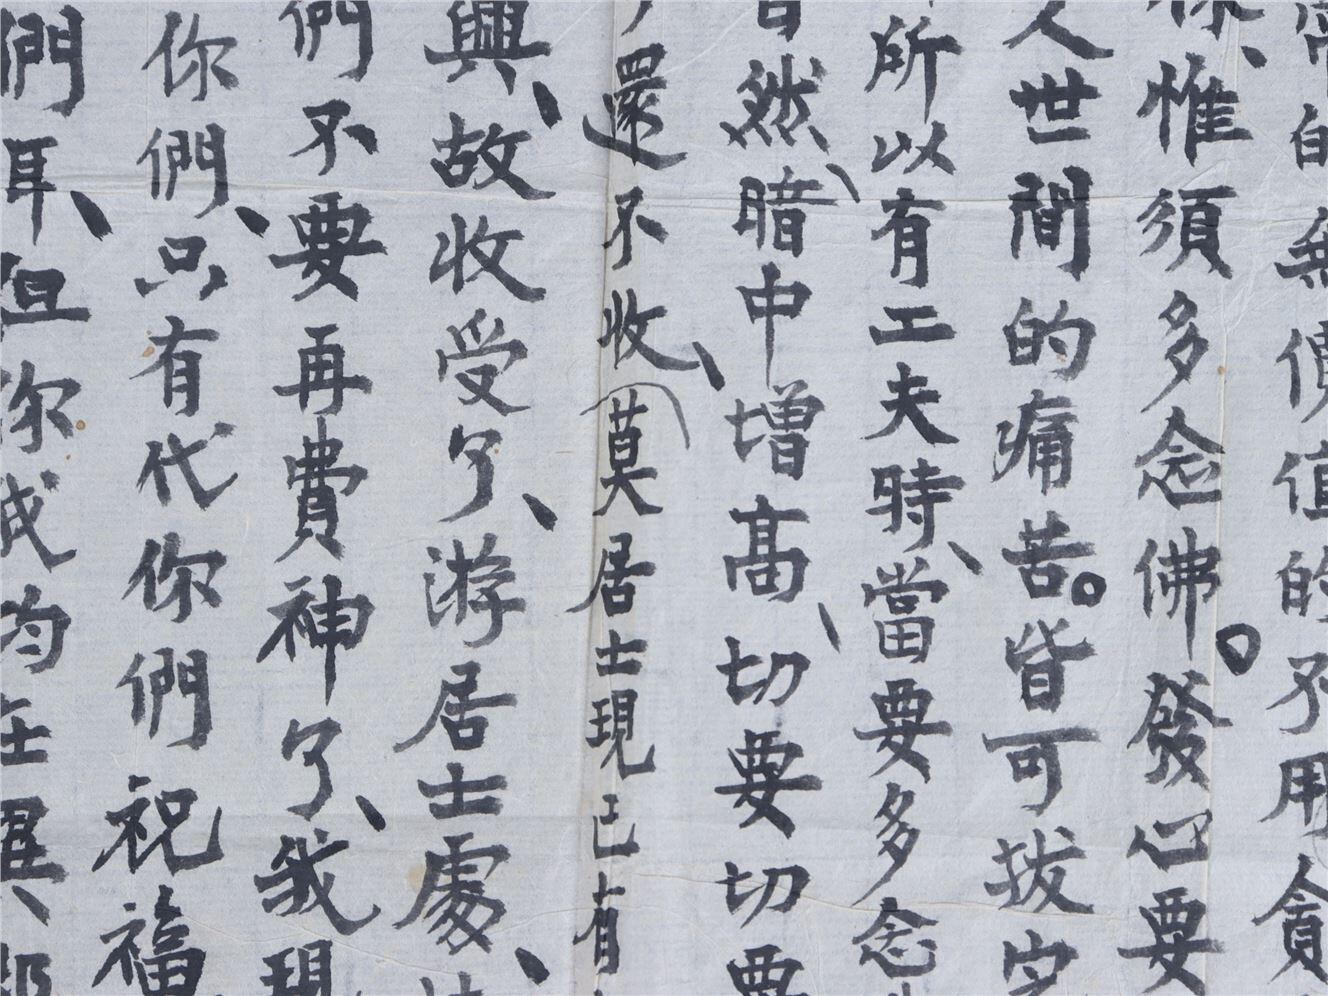 的無價值的不用貪
你、惟須多念佛。發心要
人世間的痛苦。皆可拔
所以有工夫時、當要多念
自然、暗中增高、切要切要
還不收、莫居士現已有
興、故收受了、游居士處、
們不要再費神了、我現
你們、只有代你們祝福
們耳、但你我均在異